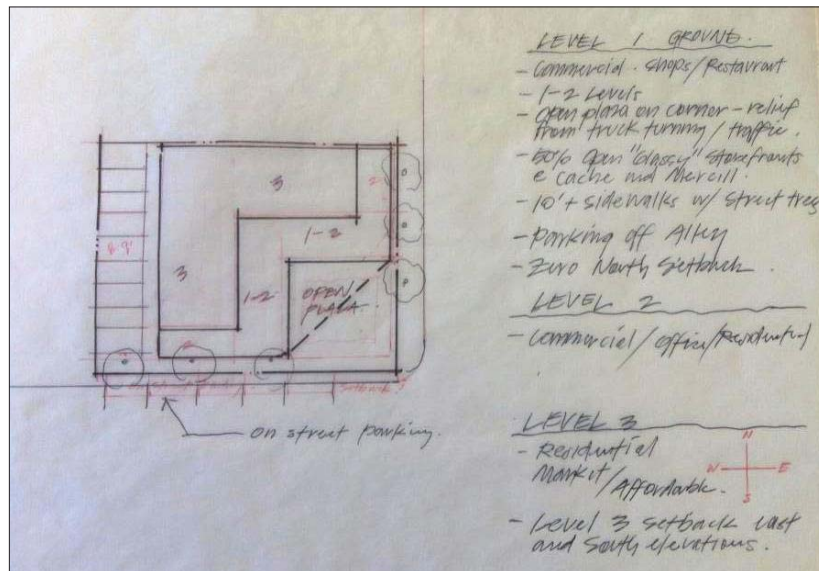 3
3
1-2
1-2
2
8-9'
OPEN
PLAZA
Setback
on street parking.
LEVEL 1 GROUND.
- Commercial. Shops/Restaurant
- 1-2 Levels
- open plaza on corner - relief
from truck turning / traffic.
- 50% open "Glassy" storefronts
e Cache and Mercill.
- 10'+ sidewalks w/ street trees
- Parking off Alley
- Zero North Setback.
LEVEL 2
- Commercial/office/Residential
LEVEL 3
- Residential
Market
/Affordable.
N
W E
S
- Level 3 setback east
and South elevations.